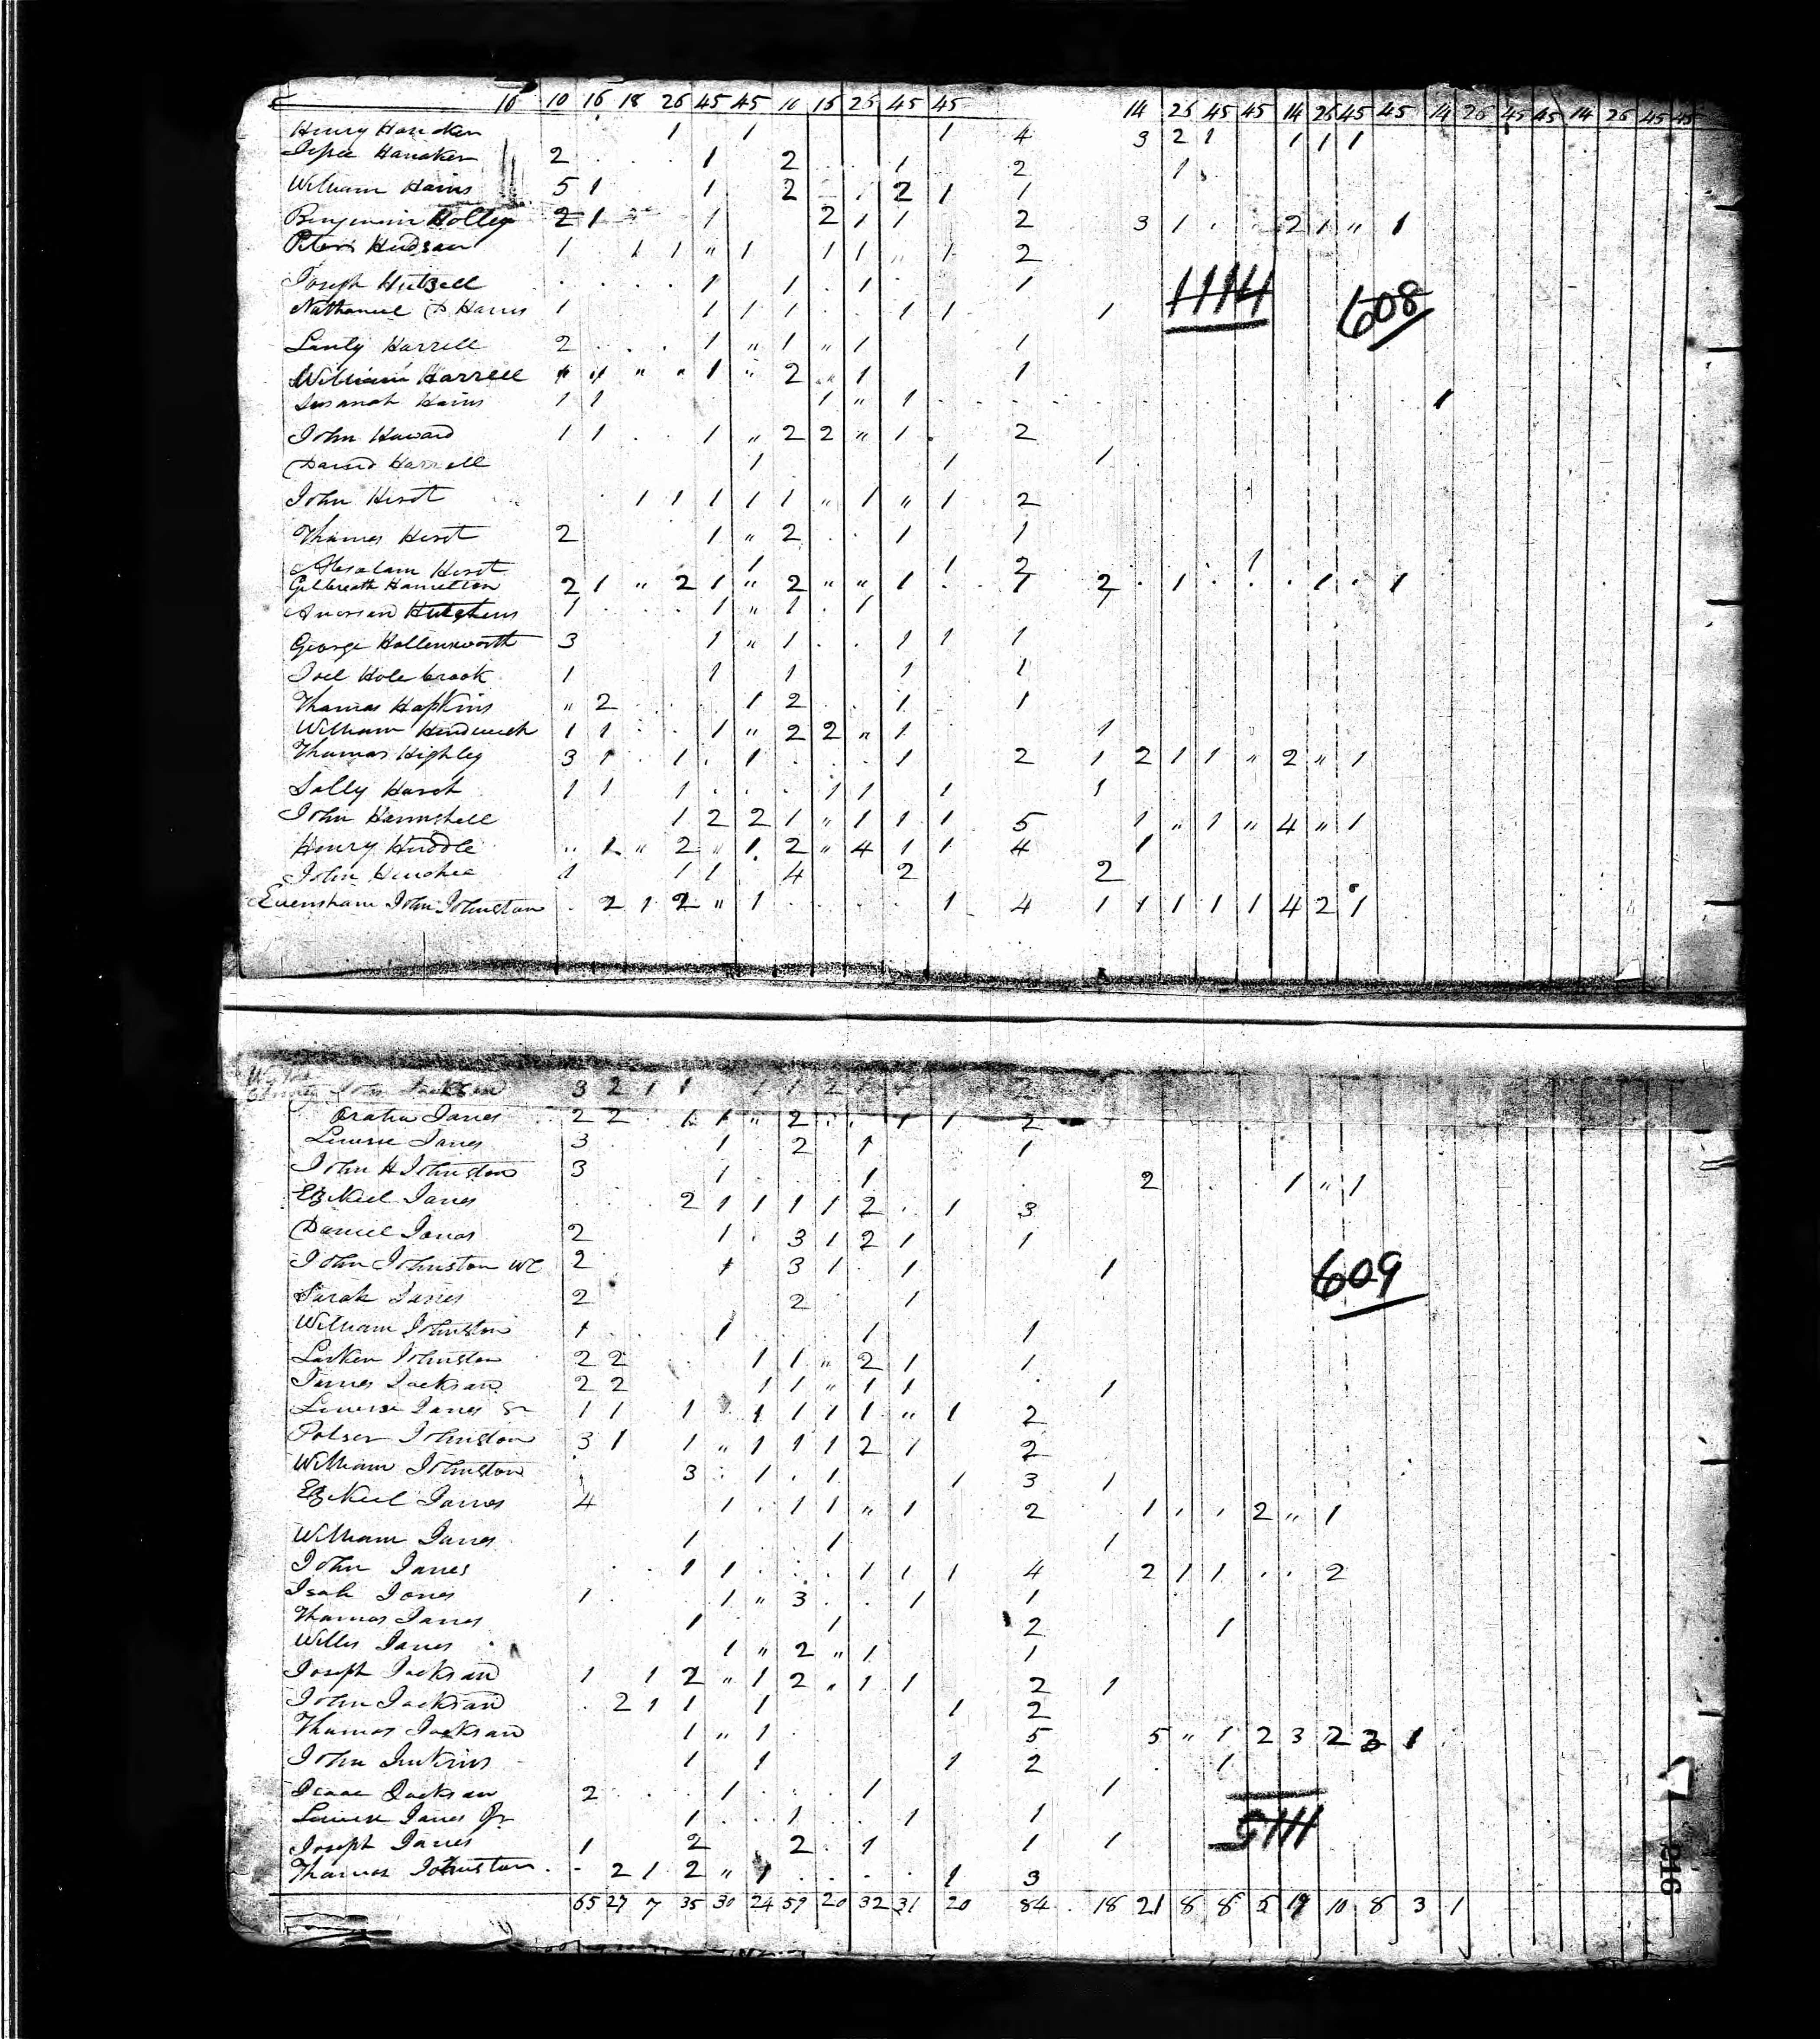 10 10 16 18 26 45 45 10 16 26 45 45 14 26 45 45 14 26 45 45 14 26 45 45 14 26 45 45
Henry 1 1 1 4 3 2 1 1 1 1
Hanaker 2 1 2 1 2 1
William Hains 5 1 1 2 2 1 1
Benjamin Holley 2 1 1 2 1 1 2 3 1 2 1 " 1
Peter Hudson 1 1 1 " 1 1 1 " 1 2
Joseph Hutzell 1 1 1 1
Nathaniel D Harris 1 1 1 1 1 1 1
1114 608
Harrell 2 1 " 1 " 1 1
William Harrell " " 1 " 2 1 1
Susanah Hains 1 1 1 " 1 1
John Howard 1 1 1 " 2 2 " 1 2
David Harrell 1 1 1
John Hirst 1 1 1 1 1 " 1 " 1 2
Thomas Hirst 2 1 " 2 1 1
Absalam Hirst 1 1 2 1
Gilbreath Hamilton 2 1 " 2 1 " 2 " " 1 1 2 1 1 1
Hutchins 1 1 " 1 1 1
George Hollensworth 3 1 " 1 1 1 1
Joel Hole brook 1 1 1 1 1
Thomas Hopkins " 2 1 2 1 1
William 1 1 1 " 2 2 " 1 1
Thomas Highley 3 1 1 1 1 2 1 2 1 1 " 2 " 1
Sally Harst 1 1 1 1 1 1 1
John 1 2 2 1 " 1 1 1 5 1 " 1 " 4 " 1
Henry Huddle " 1 " 2 " 1 2 " 4 1 1 4 1
John 1 1 1 4 2 2
Evensham John Johnston 2 1 2 " 1 1 4 1 1 1 1 1 4 2 1
County John Jackson 3 2 1 1 1 1 2 1 2
Jones 2 2 1 1 " 2 1 1 2
Jones 3 1 2 1 1
John H Johnston 3 1 1 2 1 " 1
Ezekiel Jones 2 1 1 1 1 2 1 3
Daniel Jonas 2 1 3 1 2 1 1
John Johnston WC 2 1 3 1 1 1
609
Sarah Jones 2 2 1
William Johnston 1 1 1 1
Larken Johnston 2 2 1 1 " 2 1 1
James Jackson 2 2 1 1 " 1 1 1
Jones Sr 1 1 1 1 1 1 1 " 1 2
Polser Johnston 3 1 1 " 1 1 1 2 1 2
William Johnston 3 1 1 1 3 1
Ezekiel James 4 1 1 1 " 1 2 1 2 " 1
William Jones 1 1 1
John Jones 1 1 1 1 1 4 2 1 1 2
Isah Jones 1 1 " 3 1 1
Thomas Jones 1 1 2 1
Willis Jones 1 " 2 " 1 1
Joseph Jackson 1 1 2 " 1 2 1 1 2 1
John Jackson 2 1 1 1 1 2
Thomas Jackson 1 " 1 5 5 " 1 2 3 2 3 1
John Jenkins 1 1 1 2 1
Isaac Jackson 2 1 1 1
Jones Jr 1 1 1 1
Joseph Jones 1 2 2 1 1 1
Thomas Johnston 2 1 2 " 1 1 3
65 27 7 35 30 24 59 20 32 31 20 84 18 21 8 8 5 19 10 8 3 1